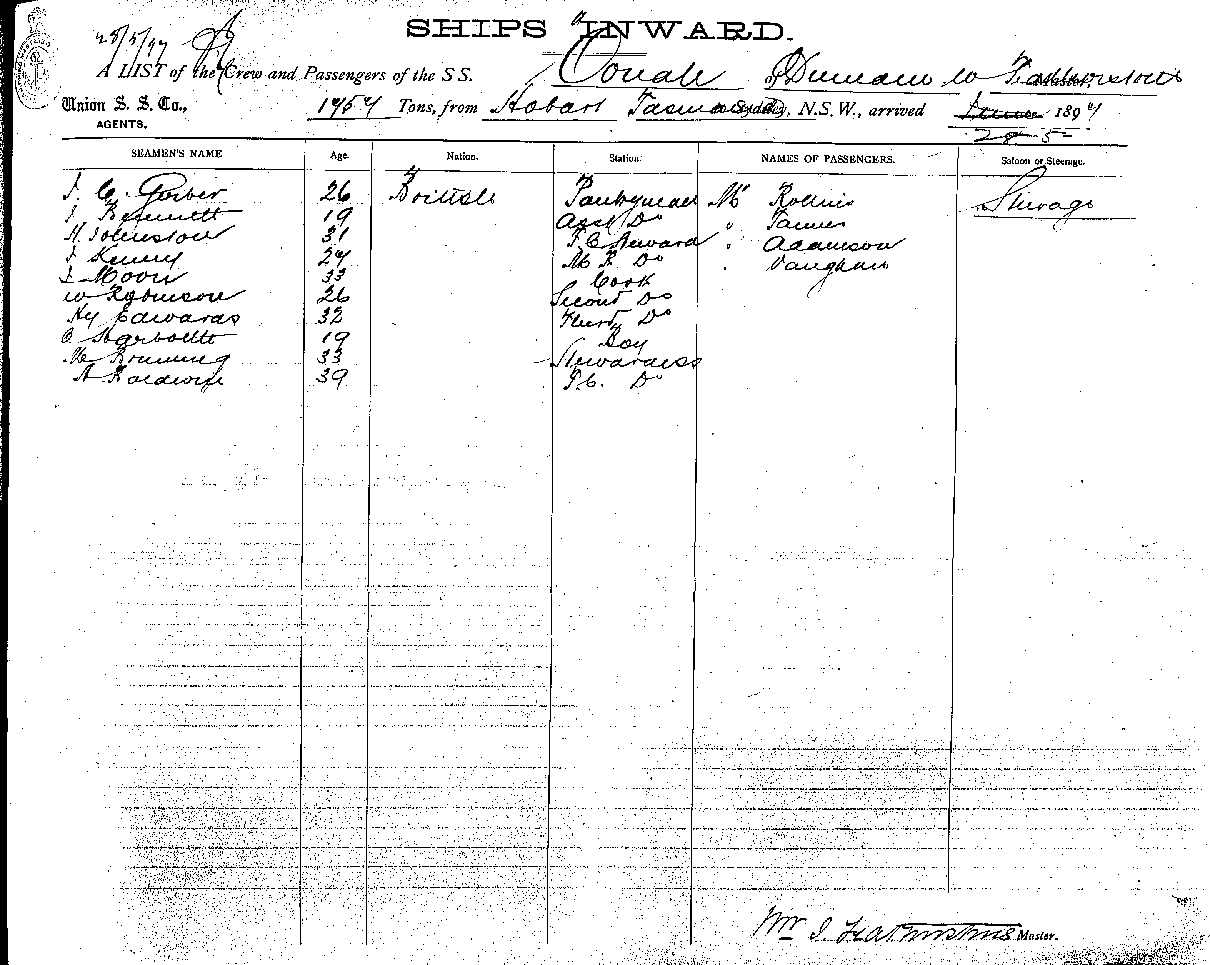 SHIPS INWARD.
28/5/97
A LIST of the Crew and Passengers of the S.S. Oonah of Dunedin W Master.
Union S. S. Co., AGENTS.
1757 Tons, from Hobart Tasmania Sydney, N.S.W., arrived 1897
28-5-
SEAMEN'S NAME Age. Nation. Station. NAMES OF PASSENGERS. Saloon or Steerage.
26 British Pantryman Mr Rollins Steerage
J. Bennett 19 Asst Do " Tanner
Johnston 31 F.C. Steward " Adamson
Kenny 27 Do " Vaughan
Moon 33 Cook
W Robinson 26 Second Do
Hy Edwards 32 Third Do
19 Boy
33 Stewardess
39 Do
Master.